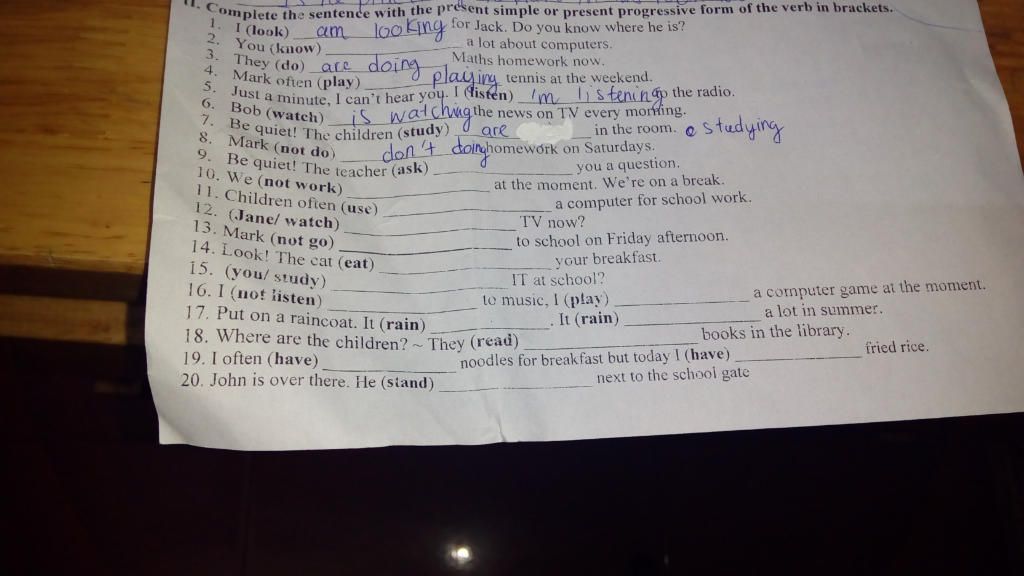 II. Complete the sentence with the present simple or present progressive form of the verb in brackets.
1. I (look) am looking for Jack. Do you know where he is?
2. You (know) ____________ a lot about computers.
3. They (do) are doing Maths homework now.
4. Mark often (play) playing tennis at the weekend.
5. Just a minute, I can't hear you. I (listen) I'm listening to the radio.
6. Bob (watch) is watching the news on TV every morning.
7. Be quiet! The children (study) are ____________ in the room. studying
8. Mark (not do) don't doing homework on Saturdays.
9. Be quiet! The teacher (ask) ____________ you a question.
10. We (not work) ____________ at the moment. We're on a break.
11. Children often (use) ____________ a computer for school work.
12. (Jane/ watch) ____________ TV now?
13. Mark (not go) ____________ to school on Friday afternoon.
14. Look! The cat (eat) ____________ your breakfast.
15. (you/ study) ____________ IT at school?
16. I (not listen) ____________ to music, I (play) ____________ a computer game at the moment.
17. Put on a raincoat. It (rain) ____________. It (rain) ____________ a lot in summer.
18. Where are the children? ~ They (read) ____________ books in the library.
19. I often (have) ____________ noodles for breakfast but today I (have) ____________ fried rice.
20. John is over there. He (stand) ____________ next to the school gate